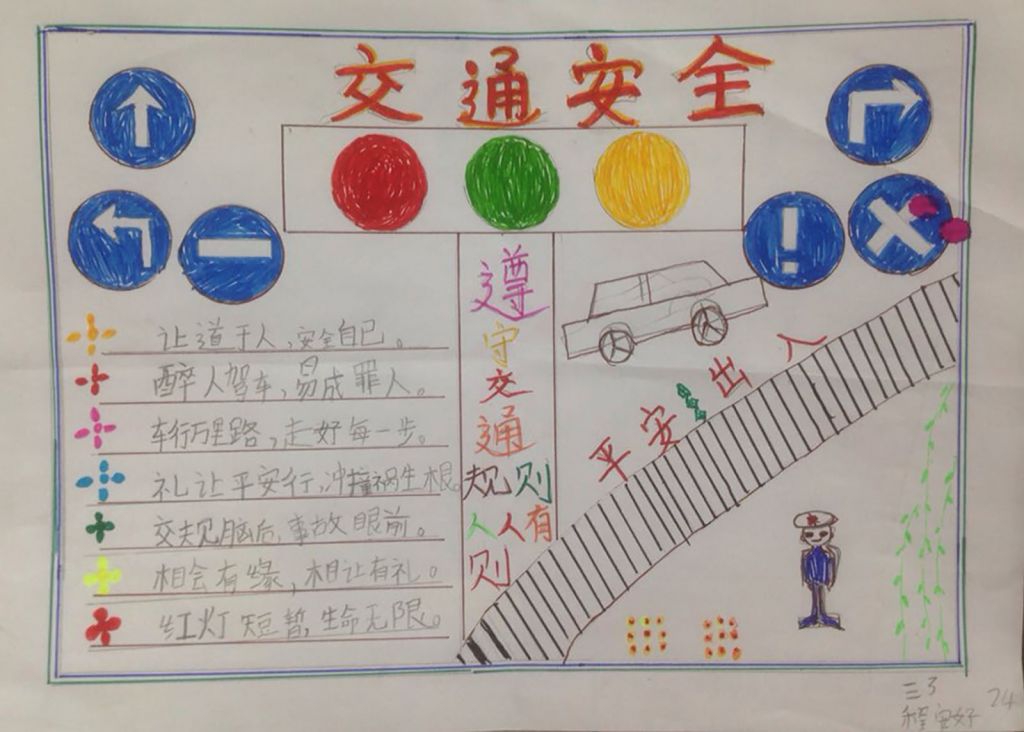 交通安全
让道于人,安全自己。
醉人驾车,易成罪人。
车行万里路,走好每一步。
礼让平安行,冲撞祸生根。
交规脑后,事故眼前。
相会有缘,相让有礼。
红灯短暂,生命无限。
遵
守
交
通
规则
人人有
则
平安出入
24